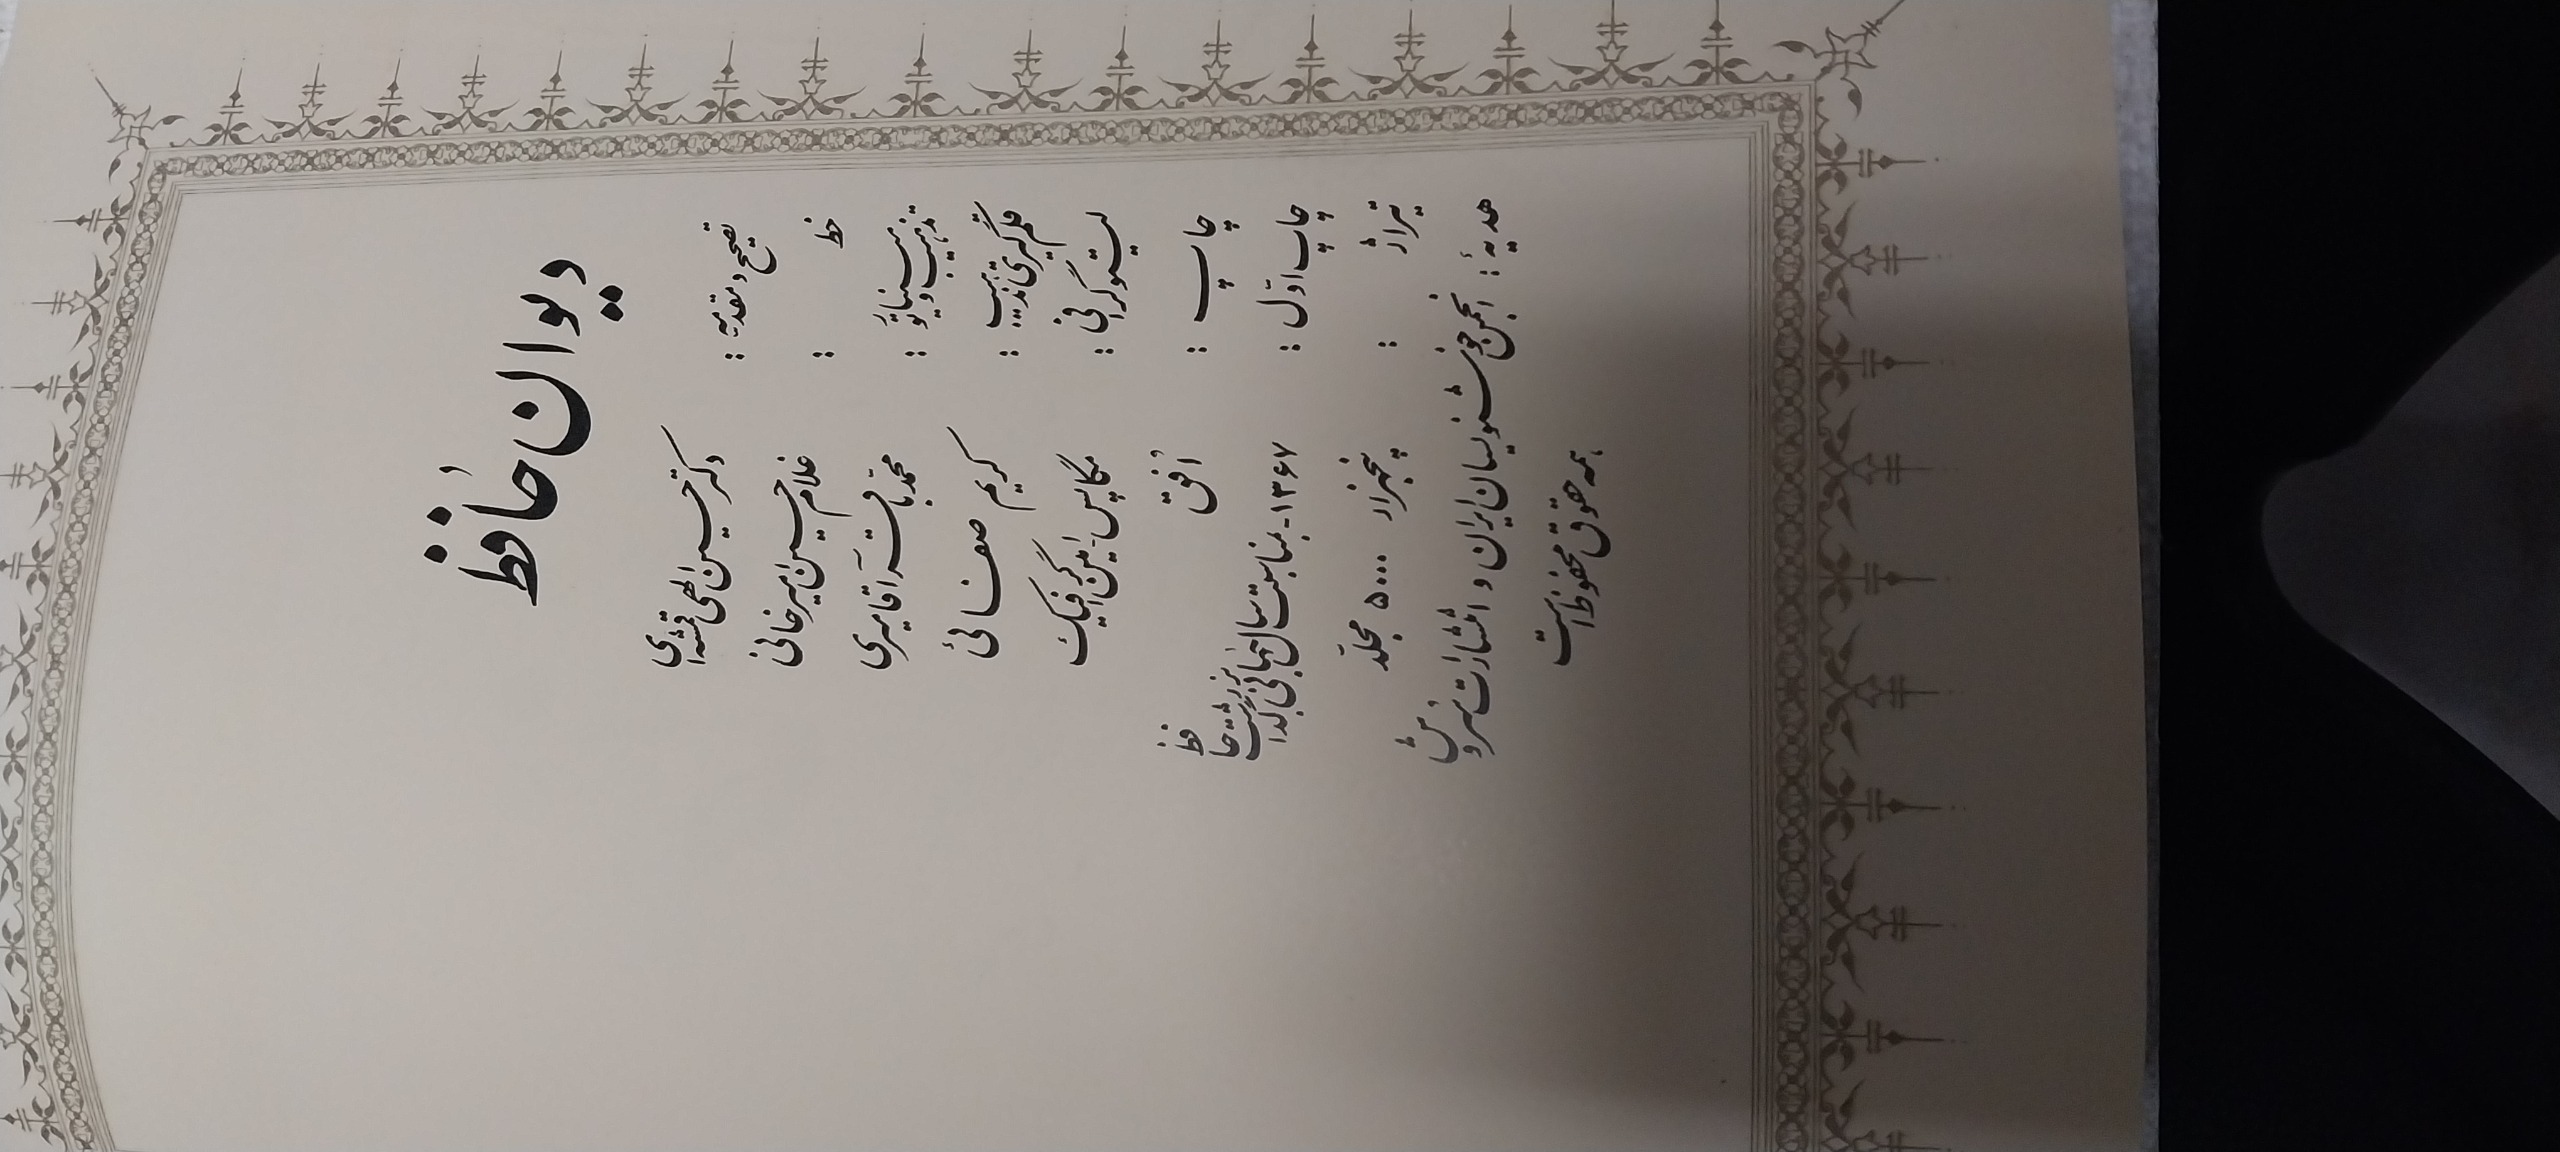 دیوان حافظ
تصحیح و مقدمه : دکتر حسین الهی قمشه‌ای
خط : غلامحسین امیرخانی
تذهیب و مینیاتور : محمد باقر آقامیری
قلمگیری تذهیب : کریم صفائی
لیتوگرافی : مگاپس - امین گرافیک
چاپ : افق
چاپ اوّل : ۱۳۶۷ - بمناسبت سال جهانی بزرگداشت حافظ
تیراژ : پنجهزار ۵۰۰۰ مجلّد
هدیهٔ : انجمن خوشنویسان ایران و انتشارات سروش
همه حقوق محفوظ است